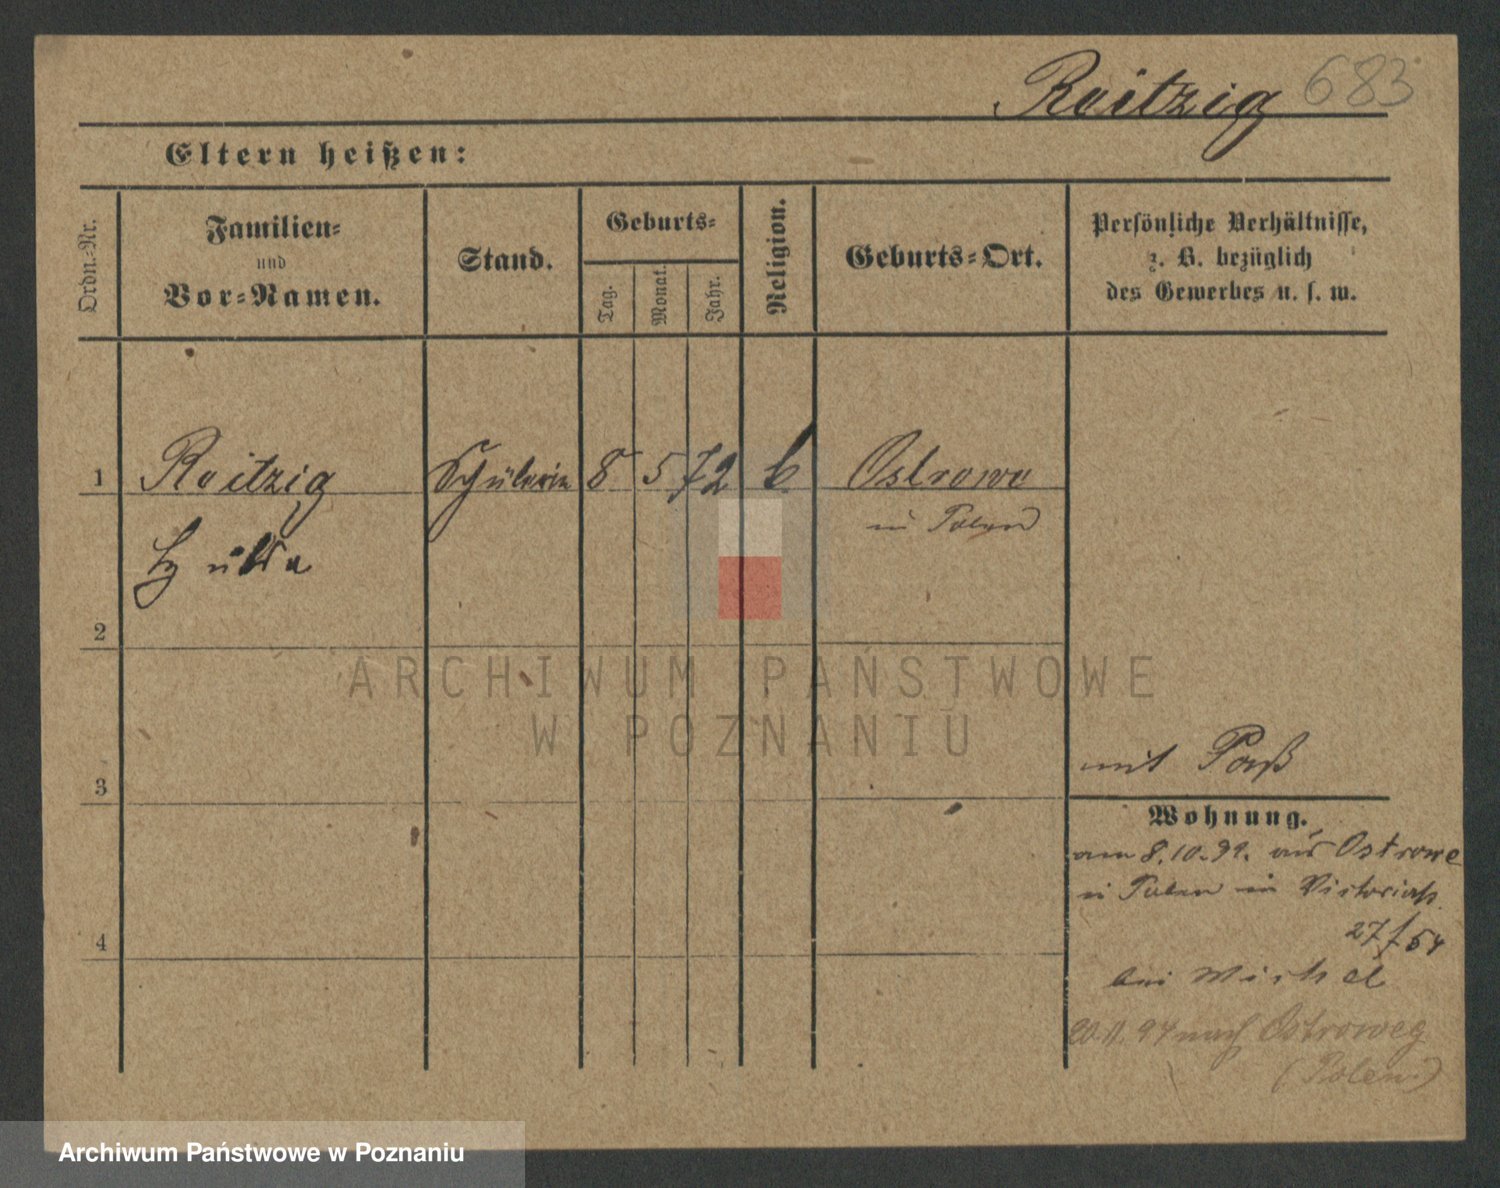 Raitzig 683
Eltern heißen:
Ordn.-Nr.
Familien-
und
Vor-Namen.
Stand.
Geburts-
Tag.
Monat.
Jahr.
Religion.
Geburts-Ort.
Persönliche Verhältnisse,
z. B. bezüglich
des Gewerbes u. s. w.
1 Raitzig Schülerin 8 5 72 Ostrowo
in Polen
2
3
4
mit Paß
Wohnung.
am 8.10.92. aus Ostrowe
in Polen in Victoriastr.
27/54
bei
20.11.94 nach Ostroweg
(Polen)
ARCHIWUM PAŃSTWOWE
W POZNANIU
Archiwum Państwowe w Poznaniu